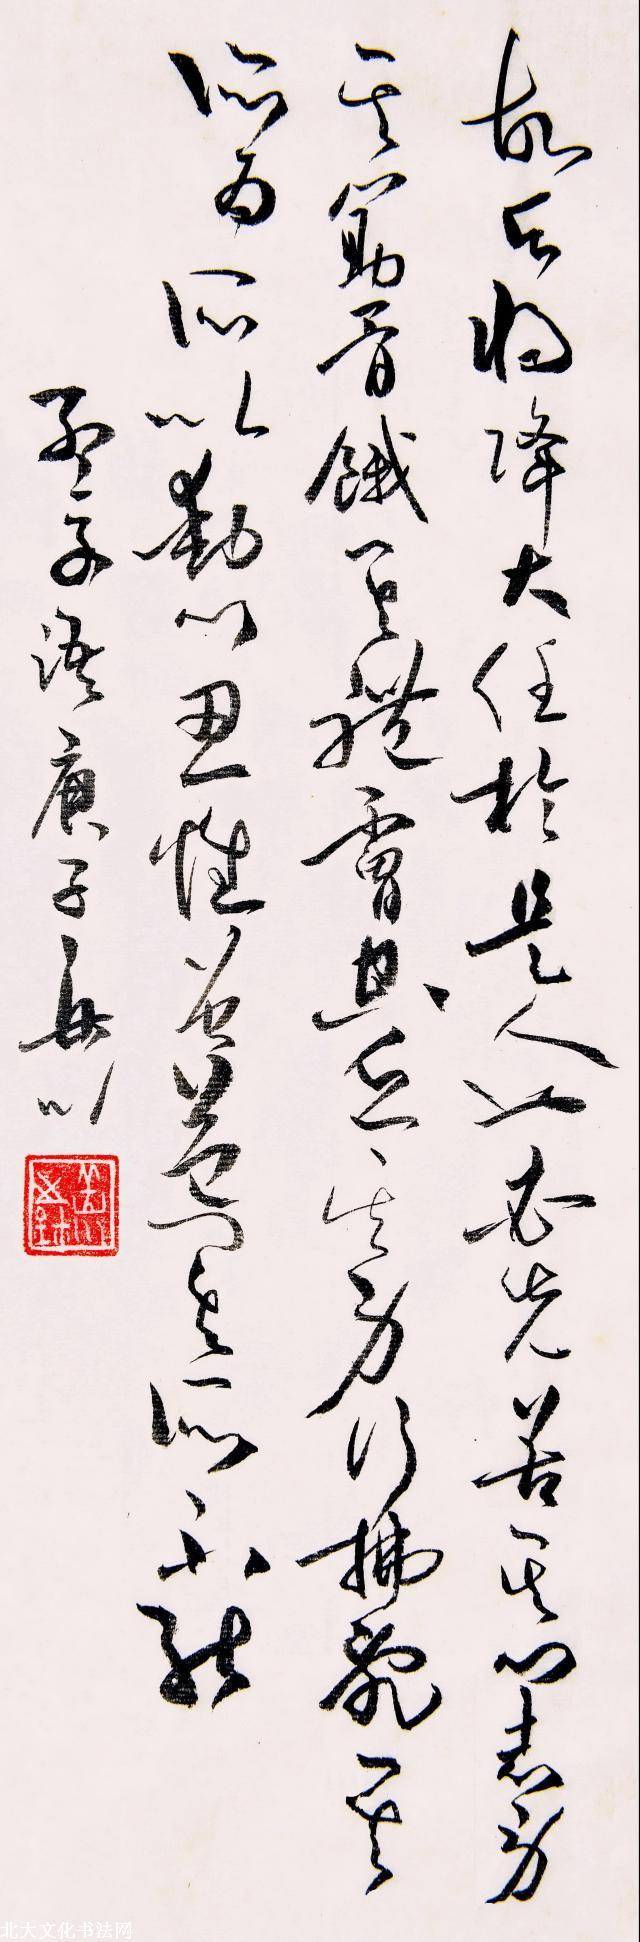 故天将降大任於是人也必先苦其心志劳
其筋骨餓其體膚空乏其身行拂亂其
所为所以動心忍性曾益其所不能
孟子語庚子
北大文化书法网